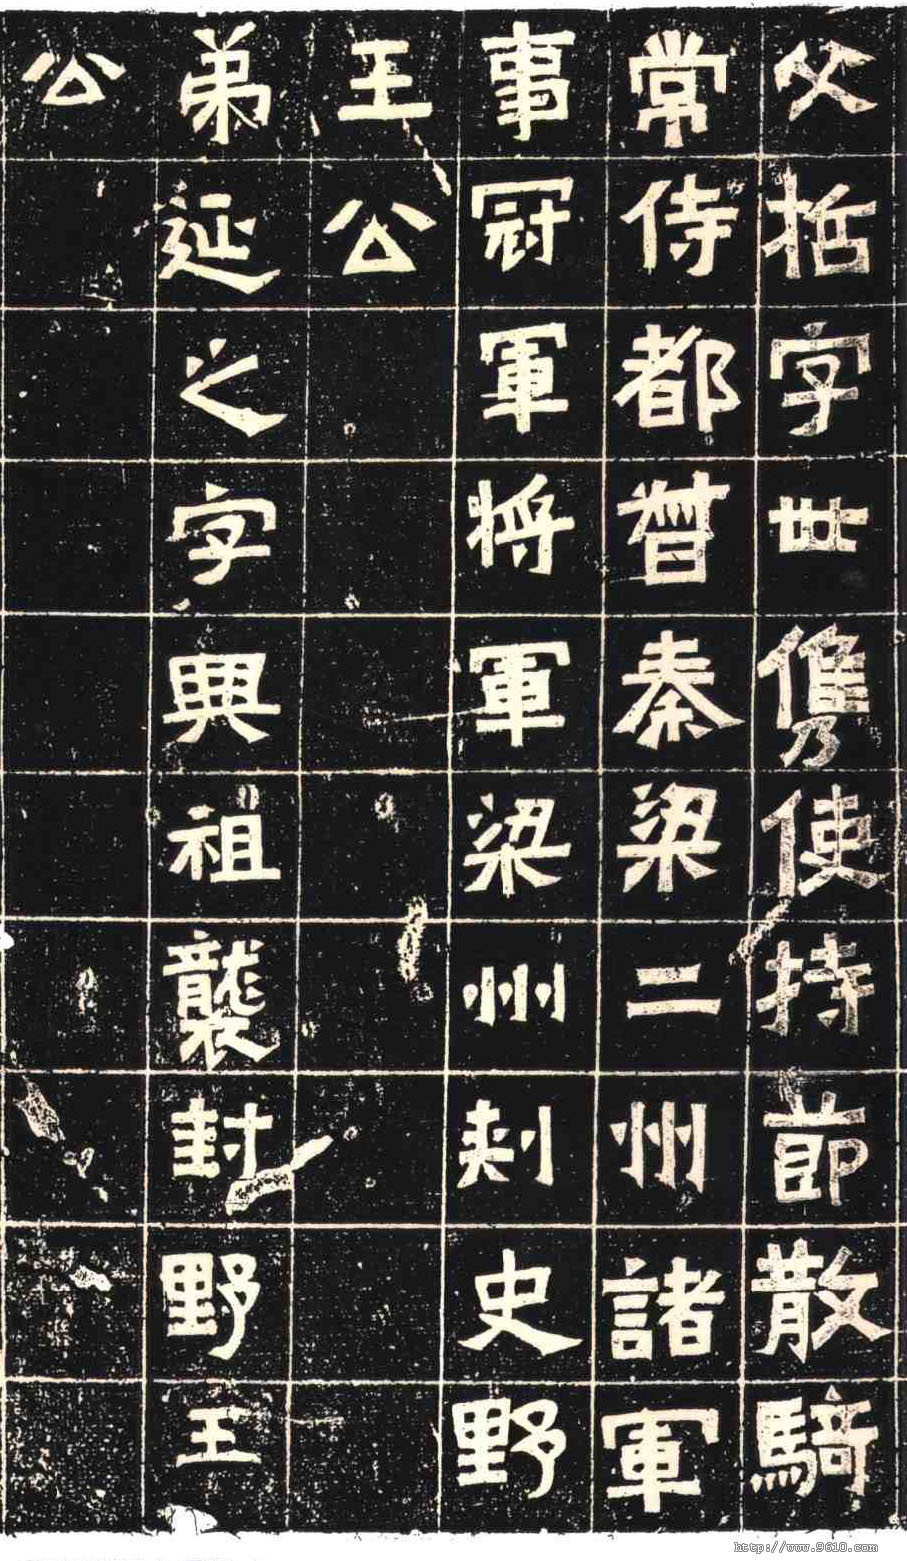 父括字世儁使持節散騎
常侍都督秦梁二州諸軍
事冠軍將軍梁州刺史野
王公
弟延之字興祖襲封野王
公
http://www.9610.com